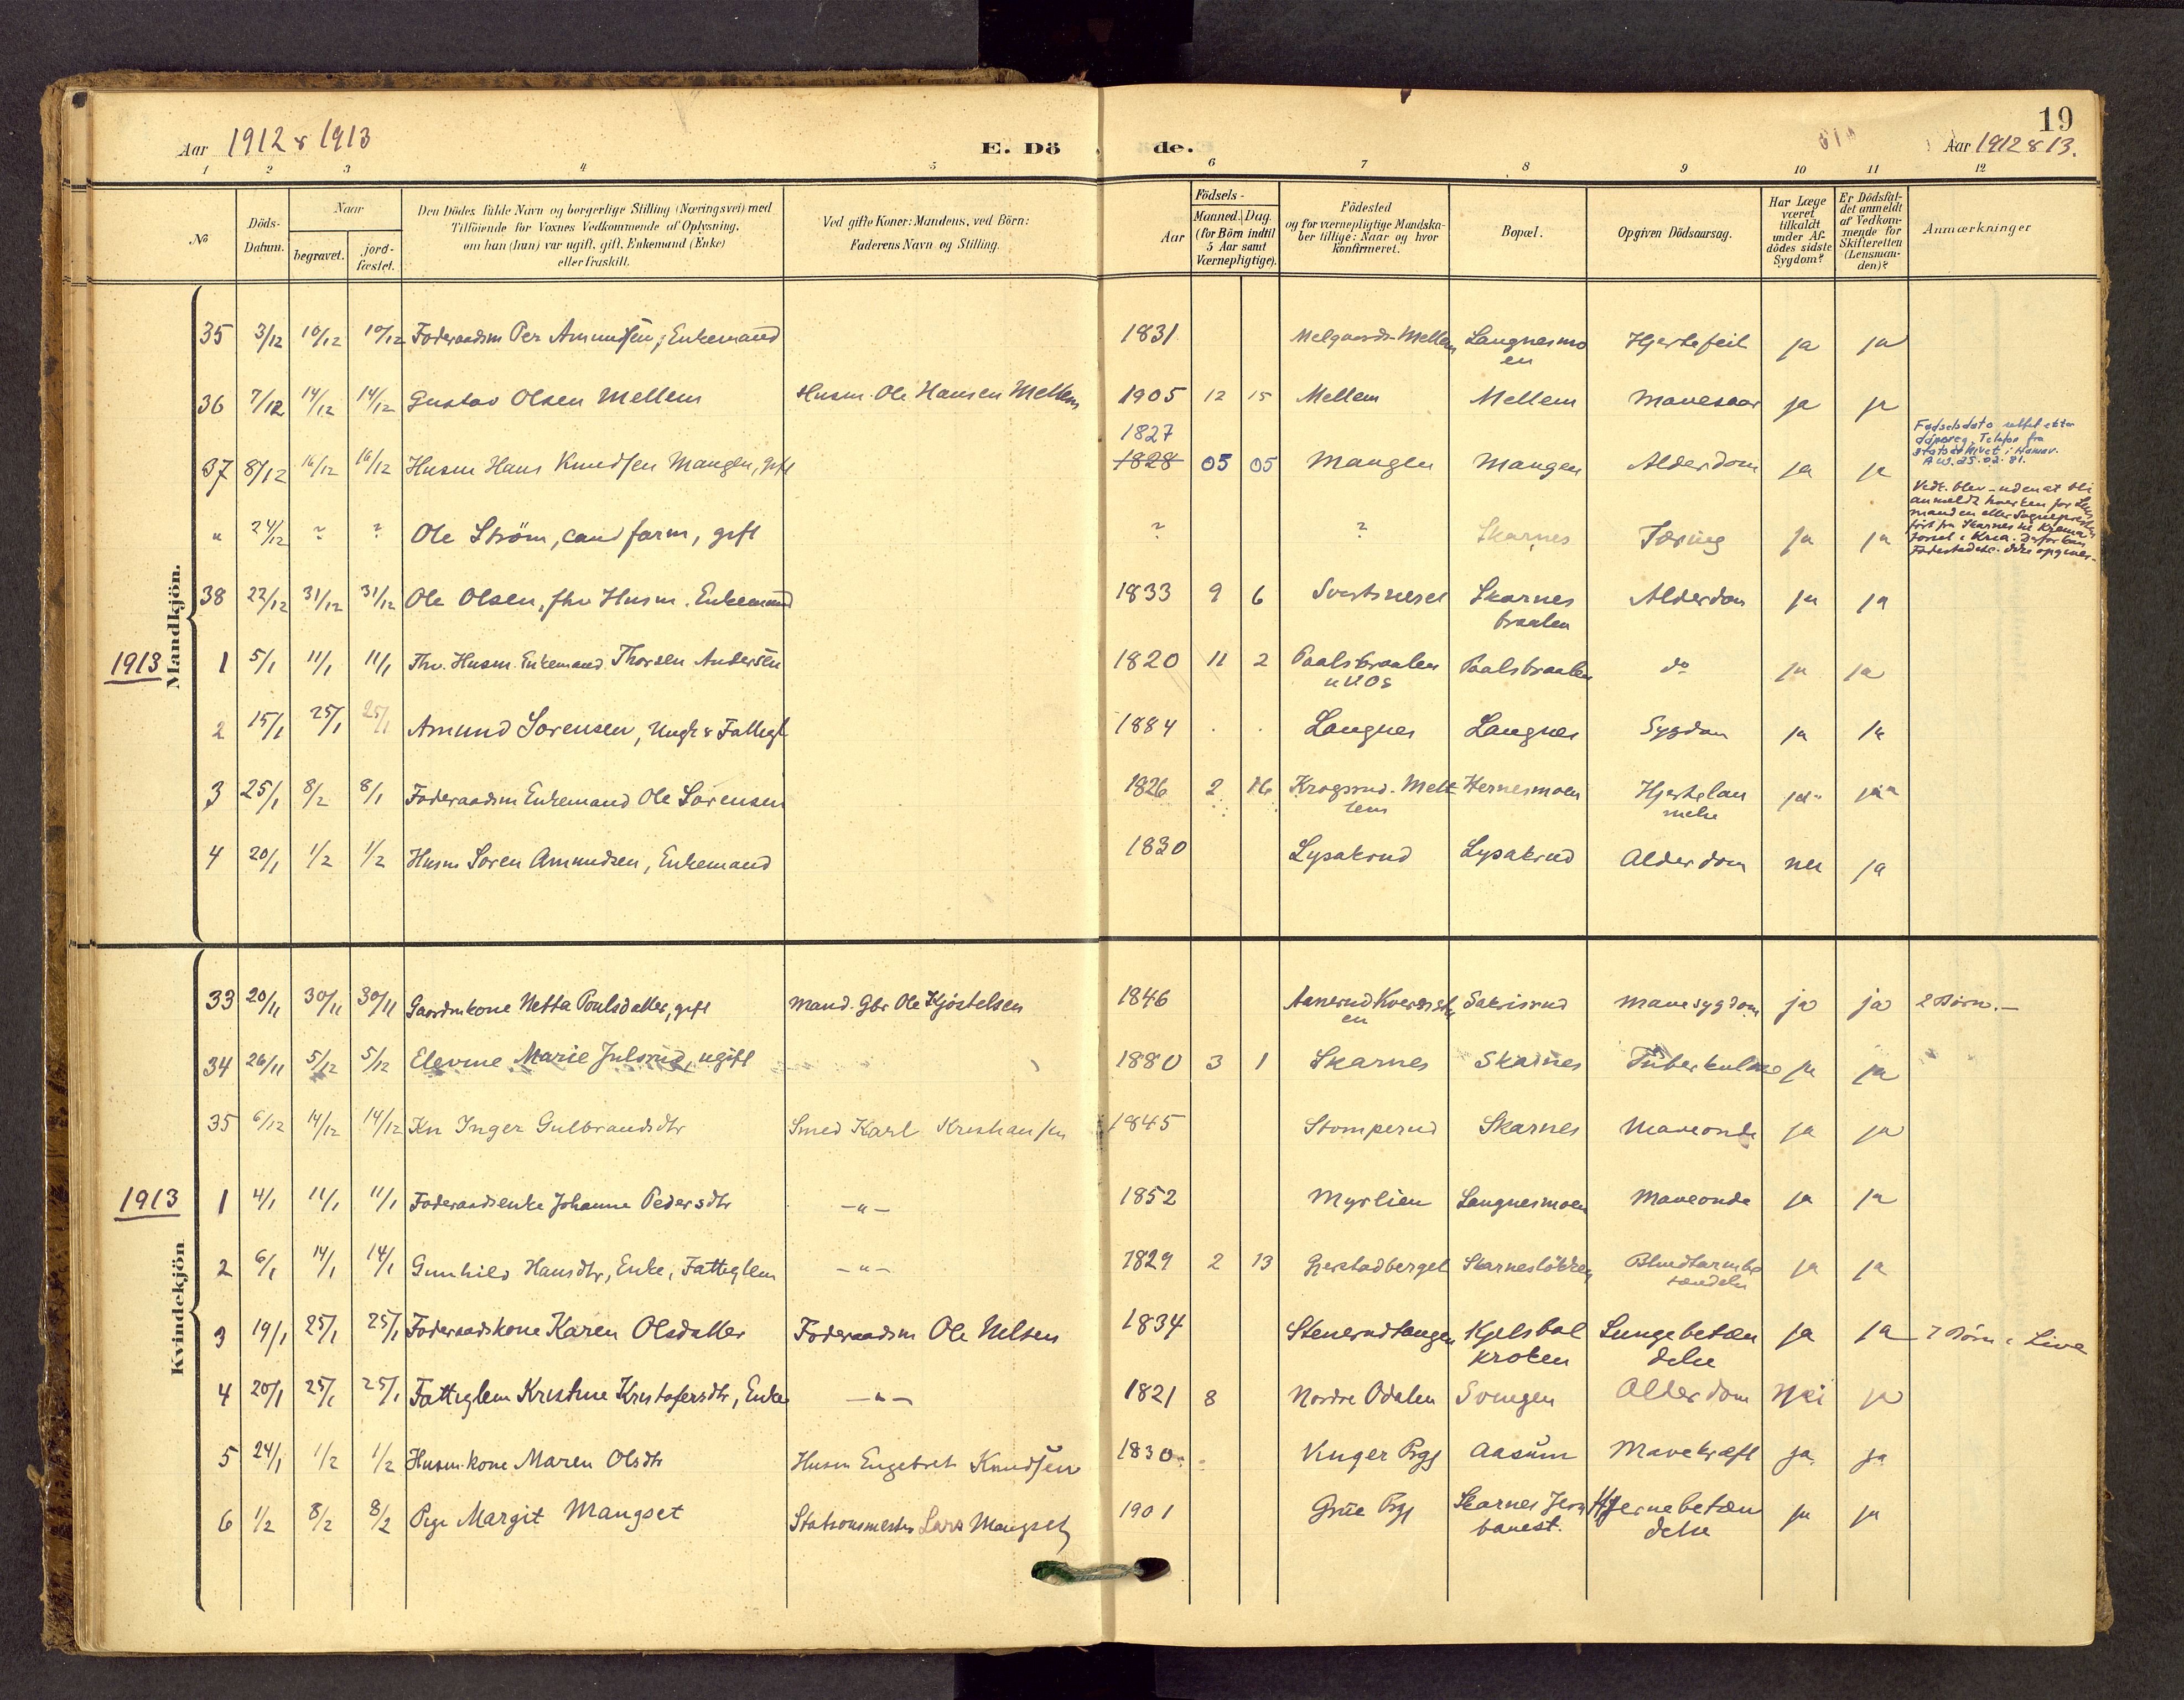 19
Aar 1912 & 1913 E. Dö de. Aar 1912 & 13.
1 2 3 4 5 6 7 8 9 10 11 12
No
Döds-Datum.
Naar
begravet.
jord-fæstet.
Den Dödes fulde Navn og borgerlige Stilling (Næringsvei) med
Tilföiende for Voxnes Vedkommende af Oplysning,
om han (hun) var ugift, gift, Enkemand (Enke)
eller fraskilt.
Ved gifte Koner: Mandens, ved Börn:
Faderens Navn og Stilling.
Födsels-
Aar
Maaned. Dag.
(for Börn indtil
5 Aar samt
Værnepligtige).
Födested
og for værnepligtige Mandska-
ber tillige: Naar og hvor
konfirmeret.
Bopæl.
Opgiven Dödsaarsag.
Har Læge
været
tilkaldt
under Af-
dödes sidste
Sygdom?
Er Dödsfal-
det anmeldt
af Vedkom-
mende for
Skifteretten
(Lensman-
den)?
Anmærkninger
Mandkjön.
35 3/12 10/12 10/12 Foderaadsm Per Amundsen, Enkemand 1831 Melgaards-Mellem Langnesmo Hjertefeil ja ja
en
36 7/12 14/12 14/12 Gustav Olsen Mellem Husm. Ole Hansen Mellem 1905 12 15 Mellem Mellem Mavesaar ja ja
1827
37 8/12 16/12 16/12 Husm Hans Knudsen Mangen, gift 1828 05 05 Mangen Mangen Alderdom ja ja
Fødselsdato rettet etter
dåpsreg. Telefon fra
statsarkivet i Hamar.
25.02.81.
" 24/12 ? ? Ole Ström, cand farm, gift ? ? Skarnes Tæring ja ja
Vedk. blev uden at bli
anmeldt hverken for Lens
manden eller Sognepresten
ført fra Skarnes til Krema
toriet i Kria. Derfor kan
Fødestedet ikke opgives.
38 22/12 31/12 31/12 Ole Olsen, fhv Husm. Enkemand 1833 9 6 Skarnes Alderdom ja ja
braaten
1913 1 5/1 11/1 11/1 Fhv. Husm. Enkemand Thorsen Andersen 1820 11 2 Paalsbraaten Paalsbraaten do ja ja
2 15/1 25/1 25/1 Amund Sorensen, Ungk & Fattigl 1884 . . Langnes Langnes Sygdom ja ja
3 25/1 8/2 8/1 Foderaadsm Enkemand Ole Sørensen 1826 2 16 Krogsrud-Mel Hernesmoen Hjertelam ja ja
lem melse
4 20/1 1/2 1/2 Husm Soren Amundsen, Enkemand 1830 Lysakrud Lysakrud Alderdom nei ja
Kvindekjön
33 20/11 30/11 30/11 Gaardmkone Netta Poulsdatter, gift Mand. Gbr Ole Kjöstelsen 1846 Sakrisrud Mavesygdom ja ja 2 Börn.-
34 26/11 5/12 5/12 Elevine Marie Julsrud, ugift 1880 3 1 Skarnes Skarnes Tuberkulose ja ja
35 6/12 14/12 14/12 Kn Inger Gulbrandsdtr Smed Karl Kristiansen 1845 Stomperud Skarnes Maveonde ja ja
1913 1 4/1 11/1 11/1 Foderaadsenke Johanne Pedersdtr -"- 1852 Myrlien Langnesmoen Maveonde ja ja
2 6/1 14/1 14/1 Gunhild Hansdtr, Enke, Fattiglem -"- 1829 2 13 Gjerstadberget Skarneslökken Blindtarmbe ja ja
tændelse
3 19/1 25/1 25/1 Foderaadskone Karen Olsdatter Foderaadsm Ole Nilsen 1834 Stenerudtangen Kjelsbol Lungebetæn ja ja 7 Börn i Live
kroken delse
4 20/1 25/1 25/1 Fattiglem Kristine Kristofersdtr, Enke -"- 1821 8 Nordre Odalen Svingen Alderdom Nei ja
5 24/1 1/2 1/2 Husm.kone Maren Olsdtr Husm Engebret Knudsen 1830 Vinger Prgj Aasum Mavekræft ja ja
6 1/2 8/2 8/2 Pige Margit Mangset Stationsmester Lars Mangset 1901 Grue Prgj Skarnes Jern Hjernebetæn ja ja
banest. delse